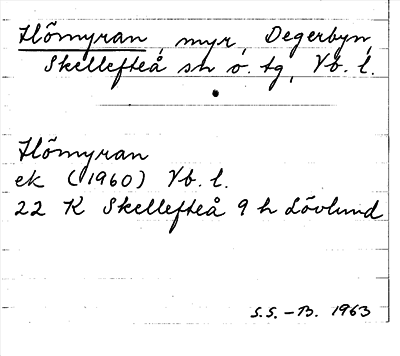 Hömyran, myr, Degerbyn,
Skellefteå sn o. tg, Vb. l.
Hömyran
ek (1960) Vb. l.
22 K Skellefteå 9 h Lövlund
S.S. - B. 1963